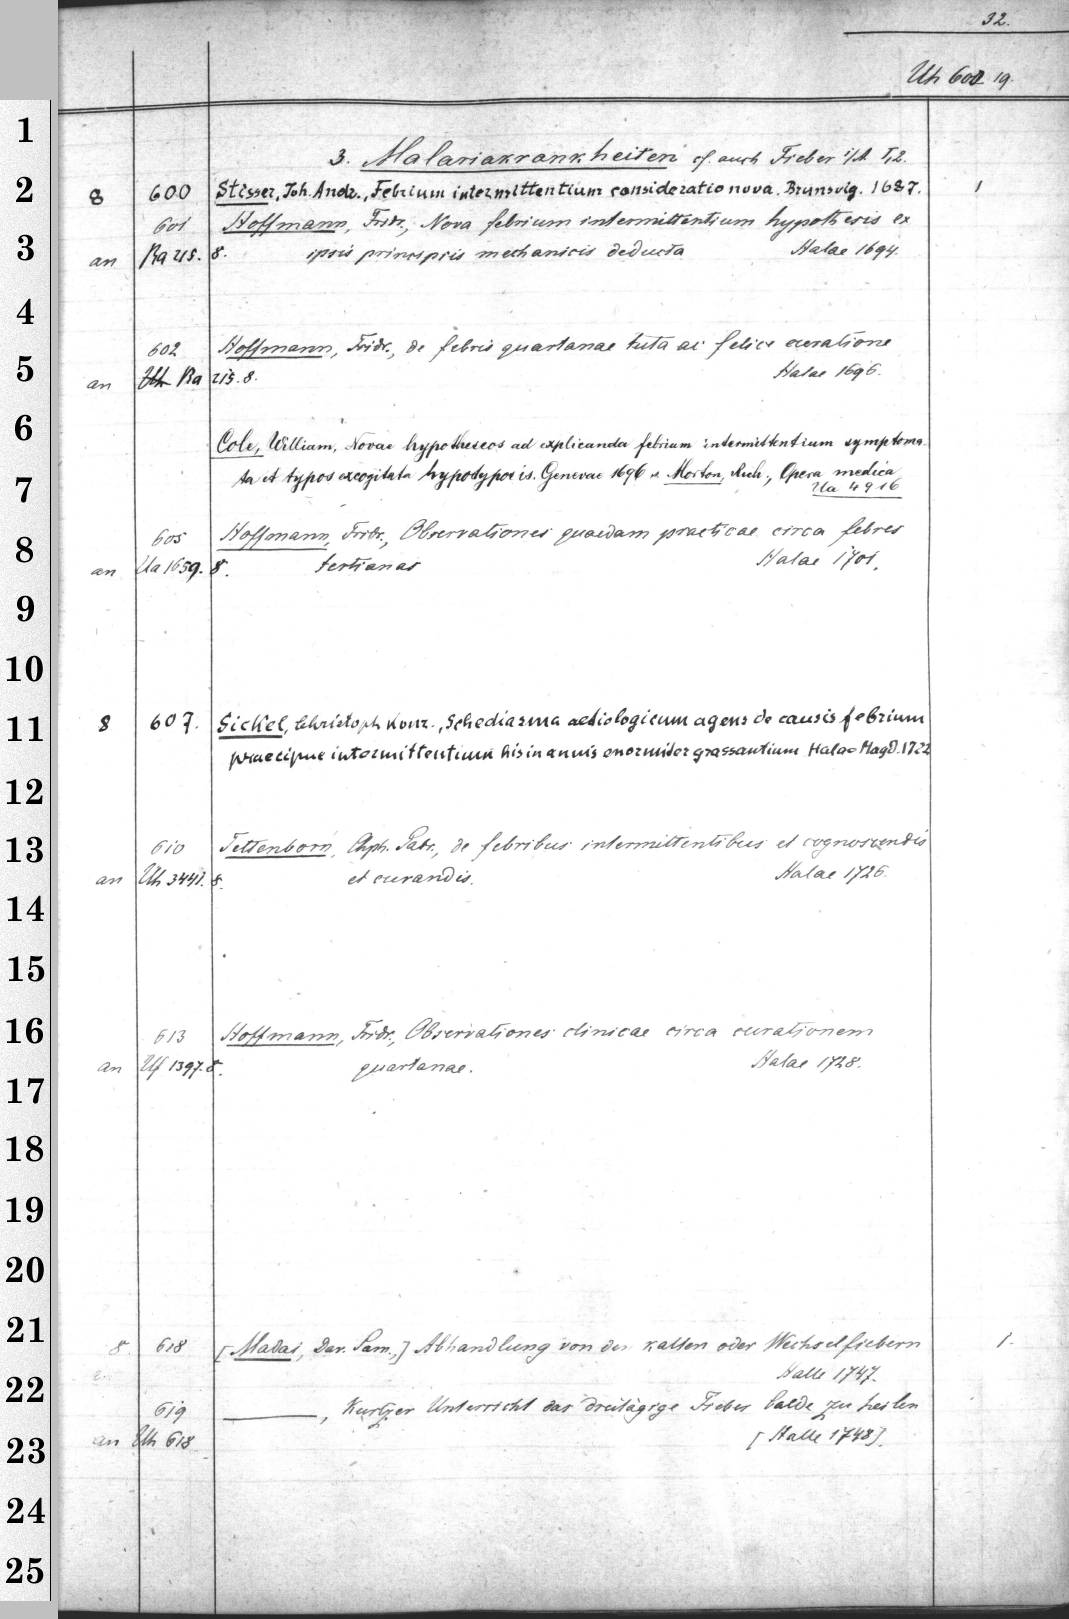 32.
Uh 600 19.
1
3. Malariakrankheiten cf. auch Fieber i/A I,2.
2
8 600 Stisser, Joh. Andr., Febrium intermittentium consideratio nova. Brunsvig. 1687. 1
601 Hoffmann, Fridr., Nova febrium intermittentium hypothesis ex
3
an Ba 215. 8. ipsis principiis mechanicis deducta Halae 1694.
4
602 Hoffmann, Fridr., de febris quartanae tuta ac felice curatione
5
an Uh Ba 215. 8. Halae 1696.
6
Cole, William, Novae hypotheseos ad explicanda febrium intermittentium symptoma-
ta et typos excogitata hypotyposis. Genevae 1696 Morton, Rich., Opera medica
7
Ua 4916
605 Hoffmann, Fridr., Observationes quaedam practicae circa febres
8
an Ua 1659. 8. tertianas Halae 1701.
9
10
11
8 607. Sickel, Christoph Konr., Schediasma aetiologicum agens de causis febrium
praecipue intermittentium his in annis enormiter grassantium Halae Magd. 1722
12
610 Tettenborn, Chph. Patr., de febribus intermittentibus et cognoscendis
13
an Uh 3441. 8. et curandis. Halae 1726.
14
15
16
613 Hoffmann, Fridr., Observationes clinicae circa curationem
an Uf 1397. 8. quartanae. Halae 1728.
17
18
19
20
21
8. 618 [Madai, Dav. Sam.,] Abhandlung von den kalten oder Wechselfiebern 1.
Halle 1747.
22
619 ———, Kurtzer Unterricht das dreitägige Fieber balde zu heilen
23
an Uh 618 [Halle 1748].
24
25